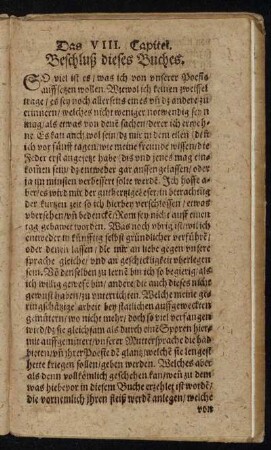 Das VIII. Capitel.
Beschluß dieses Buches.
SO viel ist es / was ich von vnserer Poesie
auff setzen wollen. Wiewol ich keinen zweiffel
trage / es sey noch allerseits eines vñ dz andere zu
erinnern / welches nicht weniger notwendig sey
mag / als etwas von denē sachen / derer ich erwehne.
Es kan auch wol sein / dz mir in dem eilen (deñ
ich vor fünff tagen / wie meine freunde wissen / die
feder erst angesetzt habe) diß vnd jenes mag ein-
kom̃en sein / dz entweder gar aussengelassen / oder
ja im minsten verbessert solte werdē. Ich hoffe a-
ber / es wird mir der guthertzige leser / in betrachtung
der kurtzen zeit so ich hierbey verschlossen / etwas
vbersehen / vñ bedenckē / Rom sey nicht auff einen
tag gebawet worden. Was noch vbrig ist / wil ich
entweder in künfftig selbst gründlicher verführē /
oder denen lassen / die mir an liebe gegen vnsere
sprache gleiche / vnd an geschickligkeit vberlegen
sein. Võ denselben zu lernē bin ich so begierig / als
ich willig gewesē bin / andere / die auch dieses nicht
gewust habeu / zu vnterrichten. Welche meine ge-
ringschätzige arbeit bey statlichen auffgeweckten
gemütern / wo nicht mehr / doch so viel verfangen
wird / dz sie gleichsam als durch einē Sporen hier-
mit auffgemuntert / vnserer Muttersprache die hād
bieten / vñ jhrer Poesie dē glantz / welchē sie lengest
hette kriegen sollen / geben werden. Welches aber
als denn vollkömlich geschehen kan / weñ zu dem
was hiebevor in diesem Buche erzehlet ist wordē /
die vornemlich jhren fleiß werdē anlegen / welche
von